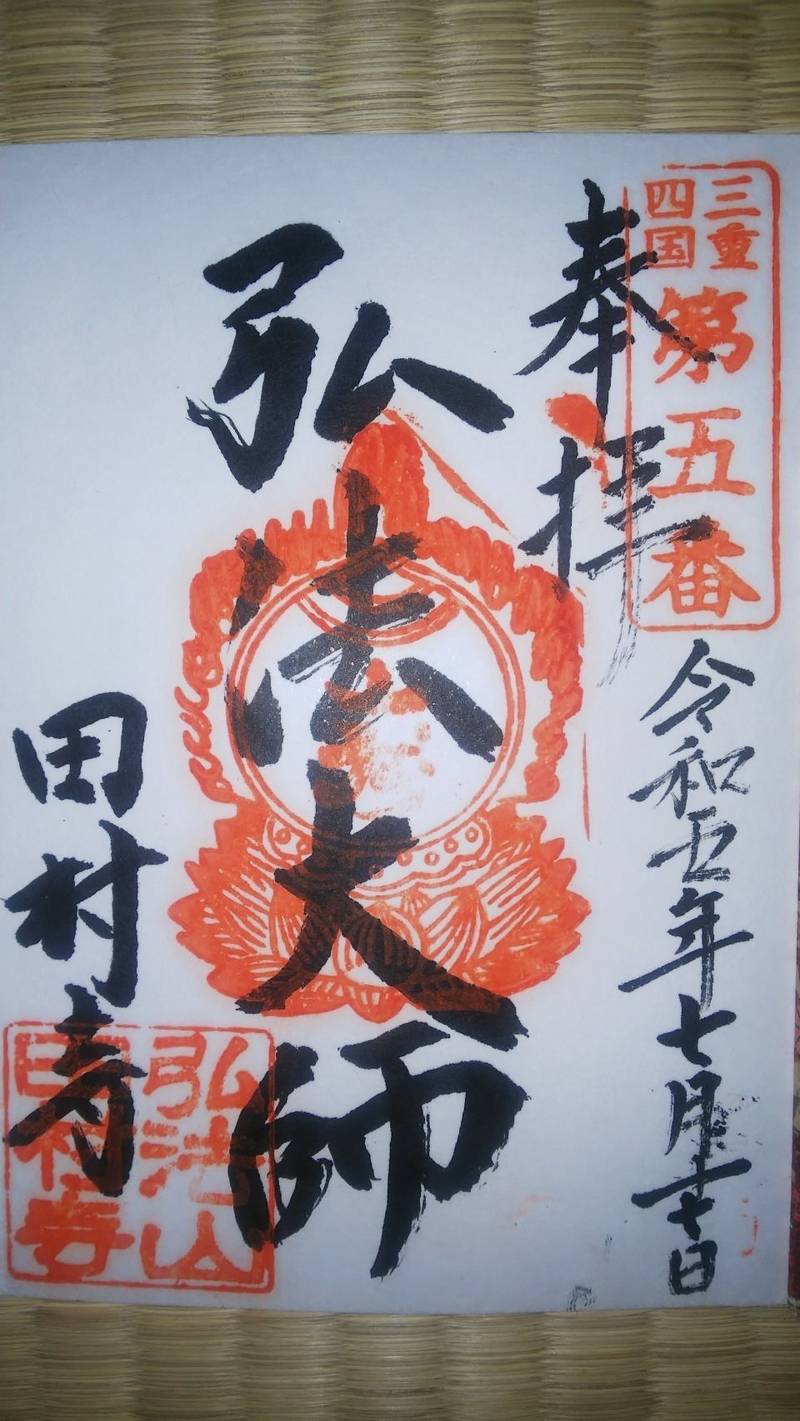 三重
四国
第五番
奉拝
令和五年七月十七日
弘法大師
田村寺
弘法山
田村寺